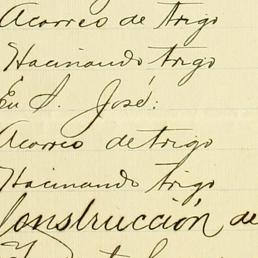 Acarreo de trigo
Hacinando trigo
En S. José:
Acarreo de trigo
Hacinando trigo
Construcción de